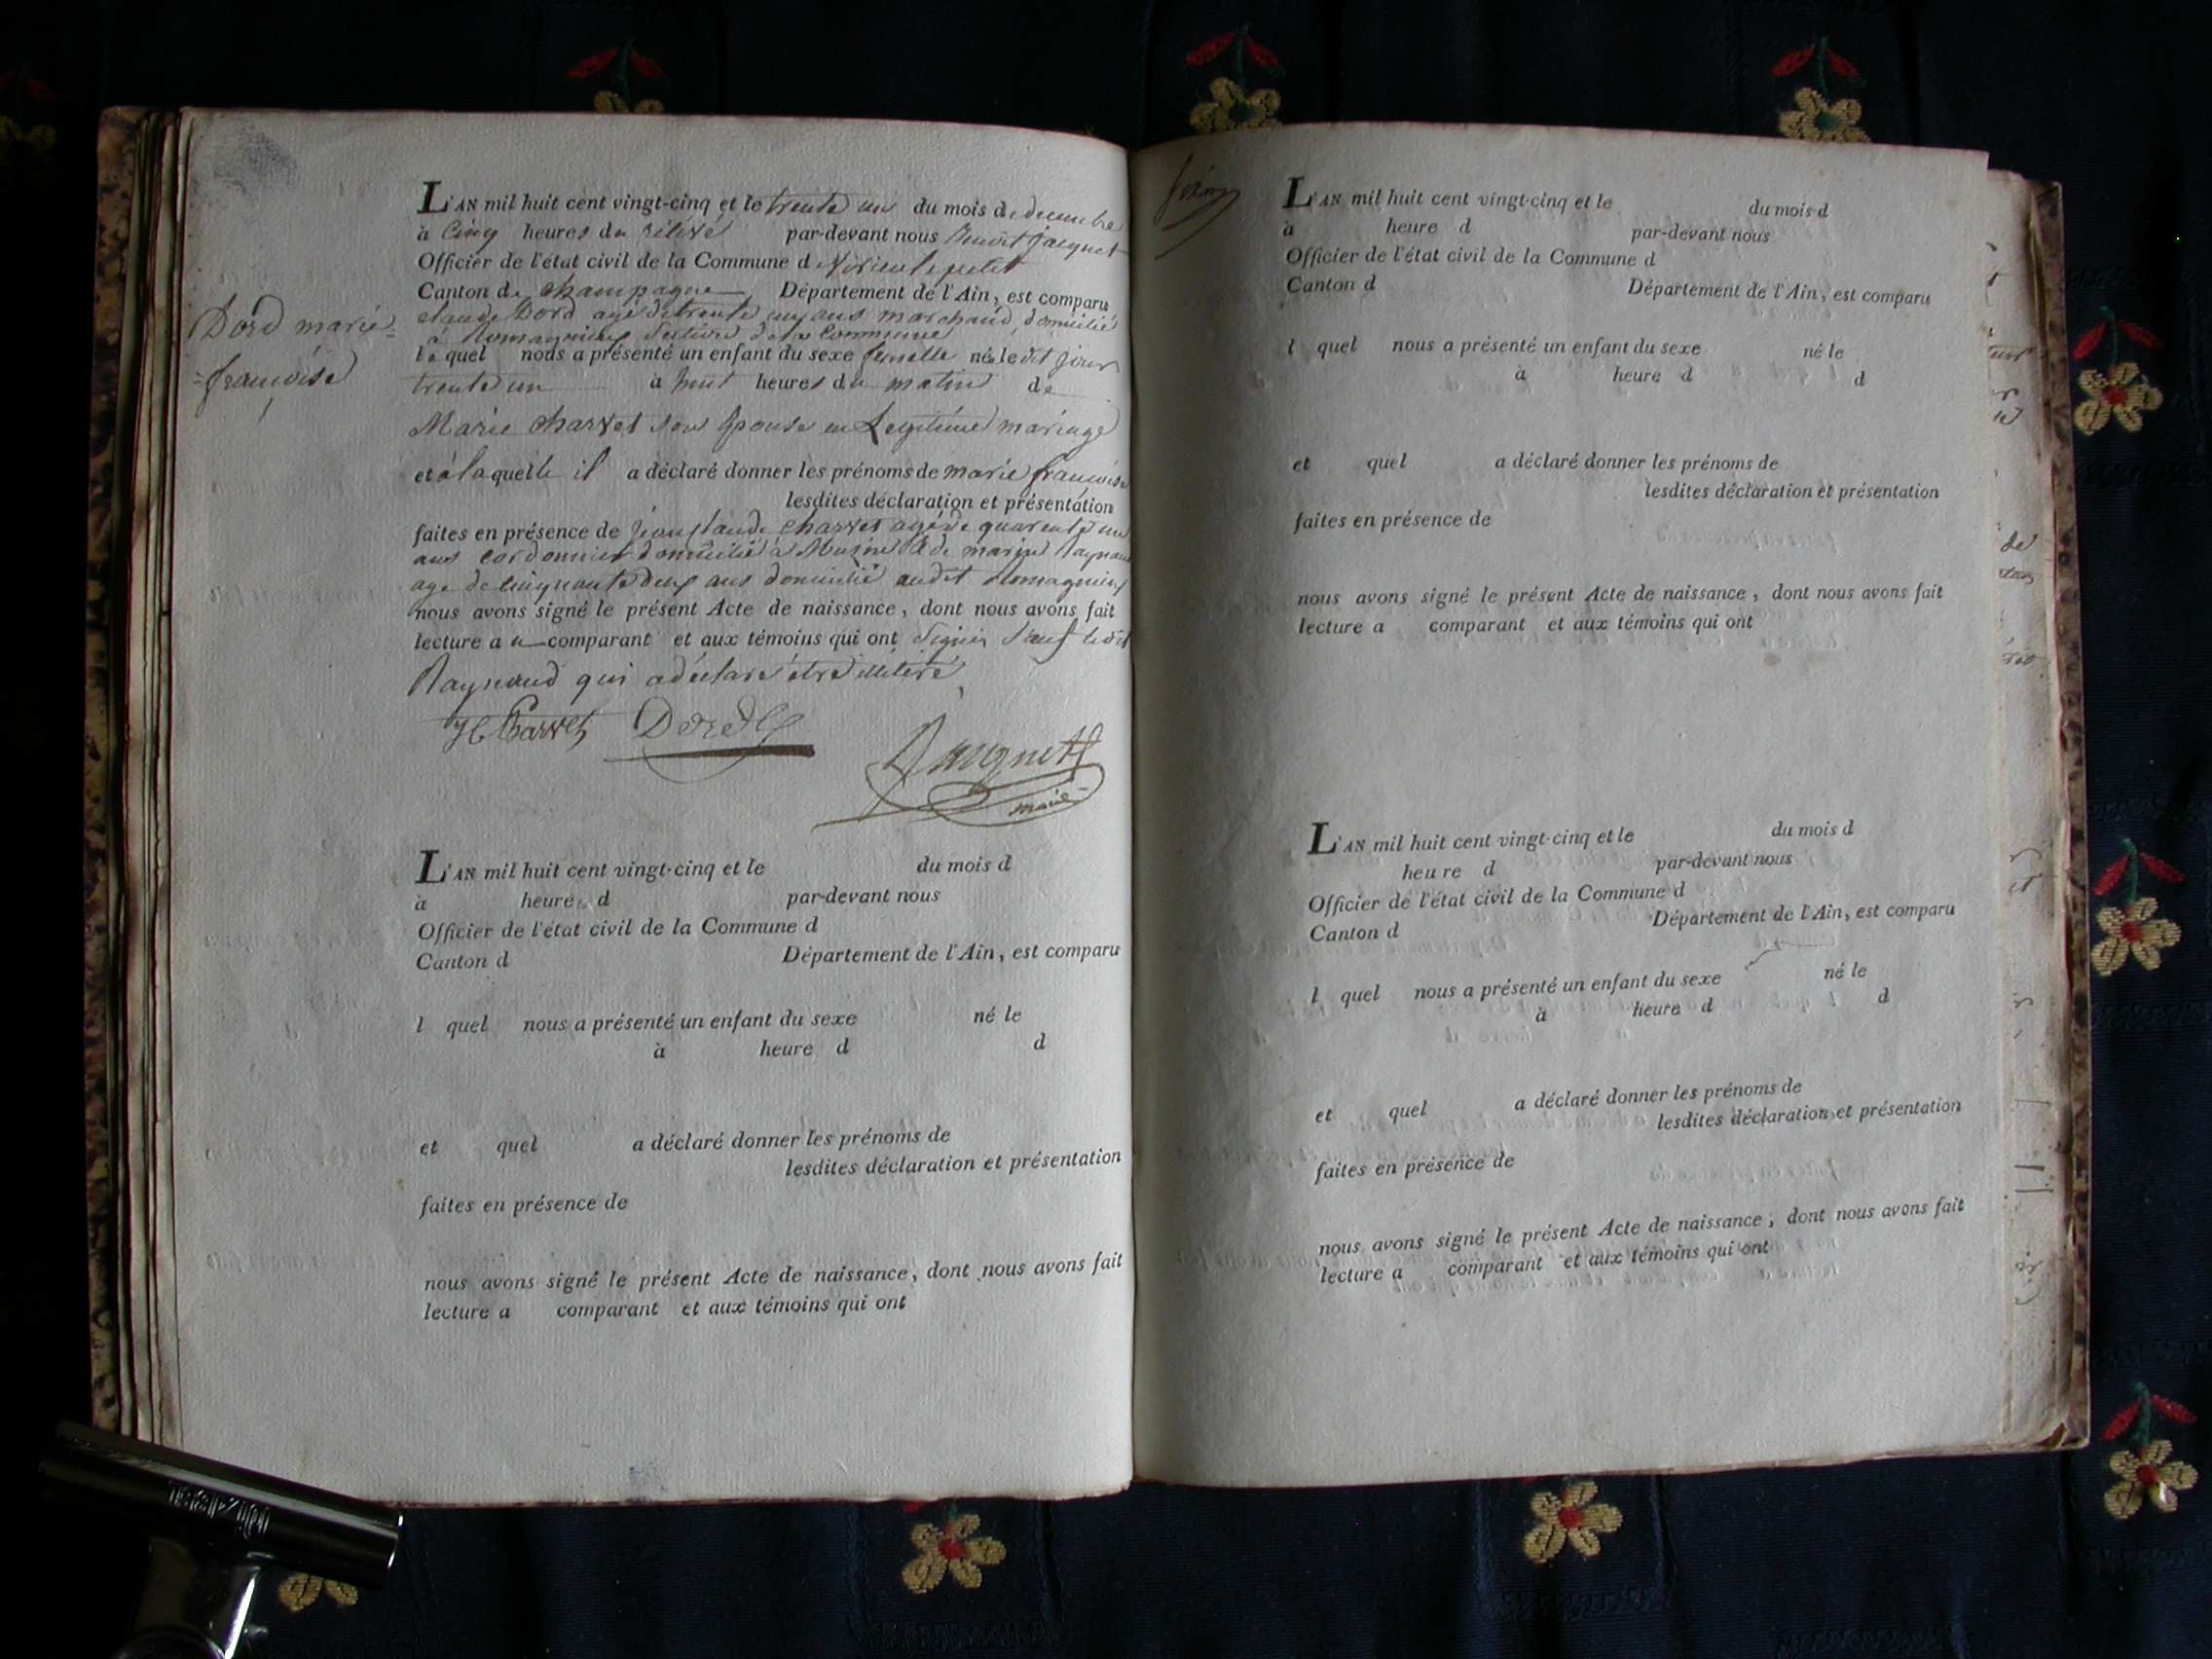 Dord marie
françoise
L'AN mil huit cent vingt-cinq et le trente un du mois de decembre
à Cinq heures du par-devant nous Benoit Jacquet
Officier de l'état civil de la Commune d Virieu le petit
Canton de champagne Département de l'Ain, est comparu
claude Dord agé de trente un ans marchand, domicilié
à Romagnieu Section de la Commune
le quel nous a présenté un enfant du sexe femelle né le dit jour
trente un à huit heures du matin de
Marie Charvet son Epouse en Legitime mariage
et à laquelle il a déclaré donner les prénoms de marie françoise
lesdites déclaration et présentation
faites en présence de Jean Claude Charvet agé de quarente un
ans cordonnier domicilié à Munet & de marin Raynaud
age de cinquante deux ans domicilié audit Romagnieu
nous avons signé le présent Acte de naissance, dont nous avons fait
lecture a u comparant et aux témoins qui ont Signés Sauf ledit
Raynaud qui a déclaré être illiteré
JC Charvet Dord Cl
Jacquet
maire
L'AN mil huit cent vingt-cinq et le du mois d
à heure d par-devant nous
Officier de l'état civil de la Commune d
Canton d Département de l'Ain, est comparu
l quel nous a présenté un enfant du sexe né le
à heure d d
et quel a déclaré donner les prénoms de
lesdites déclaration et présentation
faites en présence de
nous avons signé le présent Acte de naissance, dont nous avons fait
lecture a comparant et aux témoins qui ont
L'AN mil huit cent vingt-cinq et le du mois d
à heure d par-devant nous
Officier de l'état civil de la Commune d
Canton d Département de l'Ain, est comparu
l quel nous a présenté un enfant du sexe né le
à heure d d
et quel a déclaré donner les prénoms de
lesdites déclaration et présentation
faites en présence de
nous avons signé le présent Acte de naissance, dont nous avons fait
lecture a comparant et aux témoins qui ont
L'AN mil huit cent vingt-cinq et le du mois d
heure d par-devant nous
Officier de l'état civil de la Commune d
Canton d Département de l'Ain, est comparu
l quel nous a présenté un enfant du sexe né le
à heure d d
et quel a déclaré donner les prénoms de
lesdites déclaration et présentation
faites en présence de
nous avons signé le présent Acte de naissance, dont nous avons fait
lecture a comparant et aux témoins qui ont